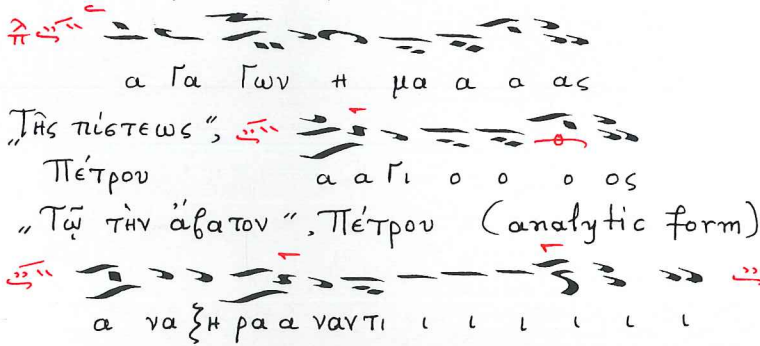 α Γα Γων η μα α α ας
„Τῆς πίστεως“,
Πέτρου α α Γι ο ο ο ος
„Τῷ τὴν ἄβατον“, Πέτρου (analytic form)
α να ξη ρα α ναντι ι ι ι ι ι ι